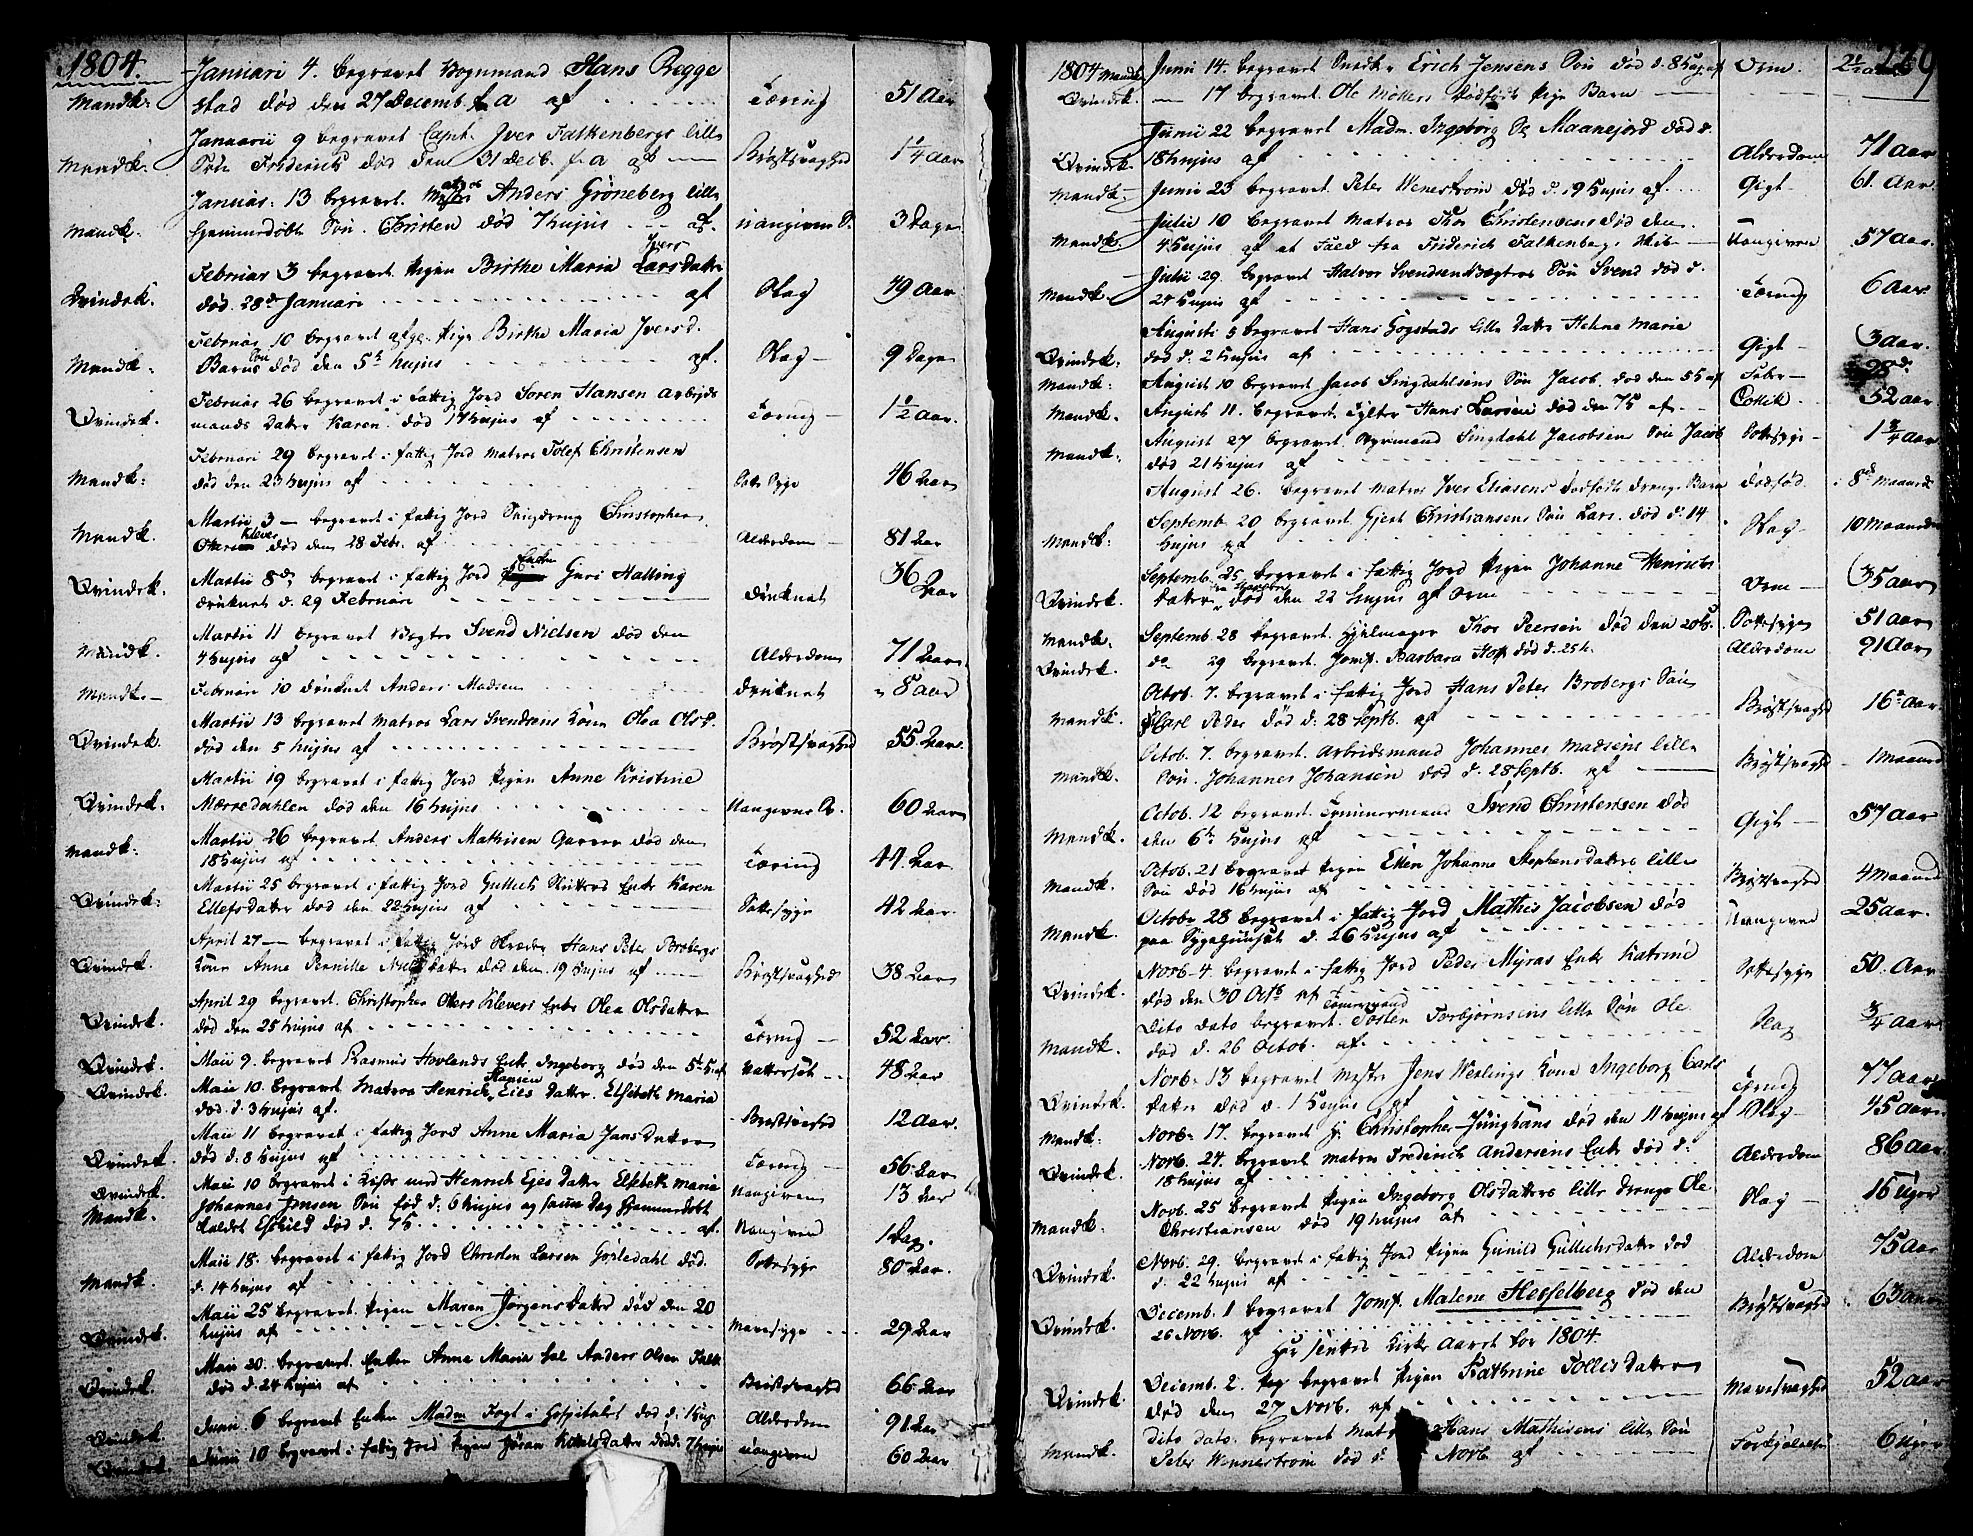 1804.
Januari 4. begravet Vognmand Hans Regge
Mandk: stad død den 27 Decemb. f. a af Tæring 51 Aar
Januarii 9 begravet Capt. Iver Falkenbergs lille
Mandk. Søn Friderich død den 31 Decb. f. a af Brøstsvaghed 1 1/4 Aar
Januar: 13 begravet Anders Grøneberg lille
Mandk. hjemmedøbte Søn Christen død 7 hujus af. uangiven 3 Dage
Februar 3 begravet Pigen Birthe Maria Iversdatter
Qvindek. død. 28de Januari af Slag 49 Aar
Februar 10 begravet Pige Birthe Maria Iversd.
Mandk. Barns Søn død den 5te hujus af. Slag 9 Dage
Februar 26 begravet i fattig Jord Søren Hansen arbeids
Qvindek. mands datter Karen død 17 hujus af Tæring 1 1/2 Aar.
Februari 29 begravet i fattig Jord matros Tolef Christensen
Mandk: død den 23 hujus af Sotte Syge 46 Aar
Martii 3 begravet i fattig Jord Christopher
Mandk. Klever død den 28 Febr. af Alderdom 81 Aar
Martii 8de begravet i fattig Jord Enken Guri Halling
Qvindek. druknet d. 29 Februari druknet 36 Aar
Martii 11 begravet Vægter Svend Nielsen død den
Mandk. 4 hujus af Alderdom 71 Aar
Mandk. Februari 10 druknet Anders Madsen druknet 8 Aar
Martii 13 begravet matros Lars Svendsens Kone Olea Olsd.
Qvindek. død den 5 hujus af Brøstsvaghed 55 Aar
Martii 19 begravet i fattig Jord Pigen Anne Kristine
Qvindek. Mærredahlen død den 16 hujus Uangiven 60 Aar
Martii 26 begravet Anders Mathisen Garver død den
Mandk: 18 hujus af Tæring 44 Aar
Martii 25 begravet i fattig Jord Gullich Enke Karen
Qvindek. Ellefsdatter død den 22 hujus af Sottesyge 42 Aar
April 27 begravet i fattig Jord Skræder Hans Peter Brobergs
Qvindek. Kone Anne Pernille Nielsdatter død den 19 hujus af Brøstsvaghed 38 Aar
April 29 begravet Christopher Klevers Enke Olea Olsdatter
Qvindek. død den 25 hujus af Tæring 52 Aar
Qvindek. Maii 9. begravet Rasmus Hovlands Enke Ingeborg død den 5te h af 48 Aar
Qvindek. Maii 10. begravet Matros Henrich Hansen Eies Datter Elsebeth Maria
død d. 3 hujus af. Brøstsvaghed 12 Aar
Maii 11 begravet i fattig Jord Anne Maria Jansdatter
Qvindek. død d. 8 hujus af Tæring 56 Aar
Qvindek. Maii 10 begravet i Kiste med Henrich Ejes datter Elsebeth Maria Uangiven 13 Aar
Mandk. Johannes Jensen Søn fød d: 6 hujus og samme Dag hjemmedøbt
kaldet Eskild død d. 7 h af. Uangiven 1 Dag.
Maii 18. begravet i fattig Jord Christen Larsen død.
Mandk. d. 14 hujus af Sottesyge 80 Aar.
Maii 25 begravet Pigen Maren Jørgensdatter død den 20
Qvindek. hujus af Mavesyge 29 Aar
Maii 30. begravet Enken Anne Maria sal Anders Olsen Falk
Qvindek. død d. 24 hujus af Brøstsvaghed 66 Aar
Qvindek. Junii 6 begravet Enken Madm Fogt i Hospitalet død d. 1 huj. Alderdom 91 Aar
Qvindek. Junii 10 begravet i fattig Jord Pigen datter død d. 7 hujus uangiven 60 Aar
229
1804 Mandk. Junii 14. begravet Snedker Erich Jensens Søn død d. 8 huj. af Orm.
Qvindek. 17 begravet Ole Møllers dødfødt Pige Barn
Junii 22 begravet Madm. Ingeborg Maanejord død d.
Qvindek. 18 hujus af Alderdom 71 Aar
Mandk. Junii 23 begravet Peter Wenestrøm død d. 19 hujus af Gigt 61. Aar.
Julii 10 begravet matros Thor Christensens død den
Mandk. 4 hujus af et Fald fra Friderich Falkenbergs Skib Uangiven 57 Aar.
Julii 29. begravet Halvor Svendsen Vægters Søn Svend død d.
Mandk. 24 hujus af Tæring 6 Aar.
Augusti 5 begravet Hans Gogstads lille datter Helene Marie
Qvindek. død d. 2 hujus af Gigt 3 Aar.
Mandk. August 10 begravet Jacob Singdahlsens Søn Jacob. død den 5 h af Feber 28 d.
Mandk. August 11. begravet Hans Larsen død den 7 h af Collik 52 Aar
August 27 begravet Styrmand Singdahl Jacobsen Søn Jacob Sottesyge 1 3/4 Aar
Mandk. død 21 hujus af
August 26. begravet matros Iver Eliasens dødfødt drenge Barn dødfød. 8 Maaned
Septemb. 20 begravet Gjert Christiansens Søn Lars. død d. 14
Mandk: hujus af Slag 10 Maaneder
Septemb. 25 begravet i fattig Jord Pigen Johanne Henrichs
Qvindek. datter død den 22 hujus af Orm Orm 35 Aar
Mandk: Septemb. 28 begravet Hjulmager Thor Peersen død den 20 h. Sottesyge 51 Aar
Qvindek. do 29 begravet Jomf. Barbara Hoff død d. 25 h. Alderdom 91 Aar
Octob. 7. begravet i fattig Jord Hans Peter Brobergs Søn
Mandk. Carl Peder død d. 28 Septb. af Brøstsvaghed 16 Aar
Octob. 7. begravet Arbeidsmand Johannes Madsens lille
Mandk. Søn. Johannes Johansen død d. 28 Septb. af Brøstsvaghed 1 Maaned
Octob. 12 begravet Tømmermand Svend Christensen død
Mandk. den 6te hujus af Gigt 57 Aar
Octob. 21 begravet Pigen Ellen Johanne Stephensdatters lille
Mandk. Søn død 16 hujus af Brøstsvaghed 4 Maaned
Octobr 28 begravet i fattig Jord Mathis Jacobsen død
Mandk. paa Sygehuuset d. 26 hujus af Uangiven 25 Aar.
Novb. 4. begravet i fattig Jord Peder Myras Enke Katrine
Qvindek. død den 30 Octb af Sottesyge 50. Aar
Dito dato begravet Tømmermand Tosten Torbjørnsens lille Søn Ole
Mandk. død d. 26 Octob. af. Slag 3/4 Aar
Novb. 13 begravet Mester Jens Werlings Kone Ingeborg Carls
Qvindek. datter død d. 1 hujus af Tæring 77 Aar
Mandk: Novb. 17. begravet Hr. Christopher Junghans død den 11 hujus af Slag 45 Aar
Qvindek. Novb. 24. begravet matros Frederich Andersens Enke død d: Alderdom 86 Aar
18 hujus af
Novb. 25 begravet Pigen Ingeborg Olsdatters lille drenge Ole
Mandk. Christiansen død 19 hujus af Slag 16 Uger
Novb. 29. begravet i fattig Jord Pigen Gunild Gullichsdatter død
Qvindek. d. 22 hujus af Alderdom 75 Aar
Decemb. 1 begravet Jomf. Malene Hesselberg død den
Qvindek. 26 Novb. af Brøstsvaghed 63 Aar
Her endes Kirke Aaret for 1804
Decemb. 2. begravet Pigen Kathrine Tollisdatter
Qvindek. død den 27 Novb. af Mavesvaghed 52 Aar
Dito dato. begravet Hans Mathisens lille Søn
Mandk. Peter Wennerstrøm død d. Novb af Forkjølelse 6 Uger